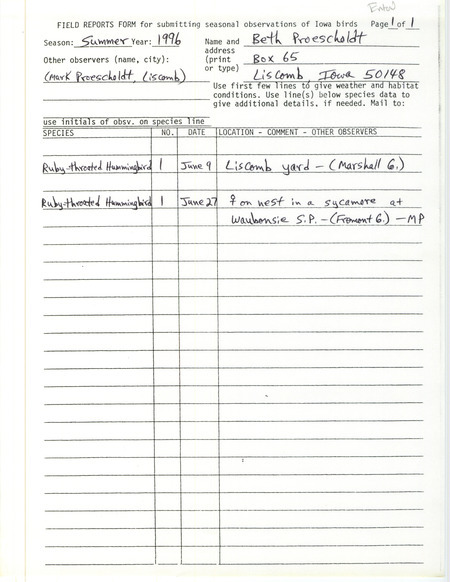 Entered
FIELD REPORTS FORM for submitting seasonal observations of Iowa birds Page 1 of 1
Season: Summer Year: 1996 Name and Beth Proescholdt
address
Other observers (name, city): (print Box 65
or type)
(Mark Proescholdt, Liscomb) Liscomb, Iowa 50148
Use first few lines to give weather and habitat
conditions. Use line(s) below species data to
give additional details, if needed. Mail to:
use initials of obsv. on species line
SPECIES NO. DATE LOCATION - COMMENT - OTHER OBSERVERS
Ruby-throated Hummingbird 1 June 9 Liscomb yard - (Marshall G.)
Ruby-throated Hummingbird 1 June 27 ♀ on nest in a sycamore at
Waubonsie S.P. - (Fremont G.) - MP